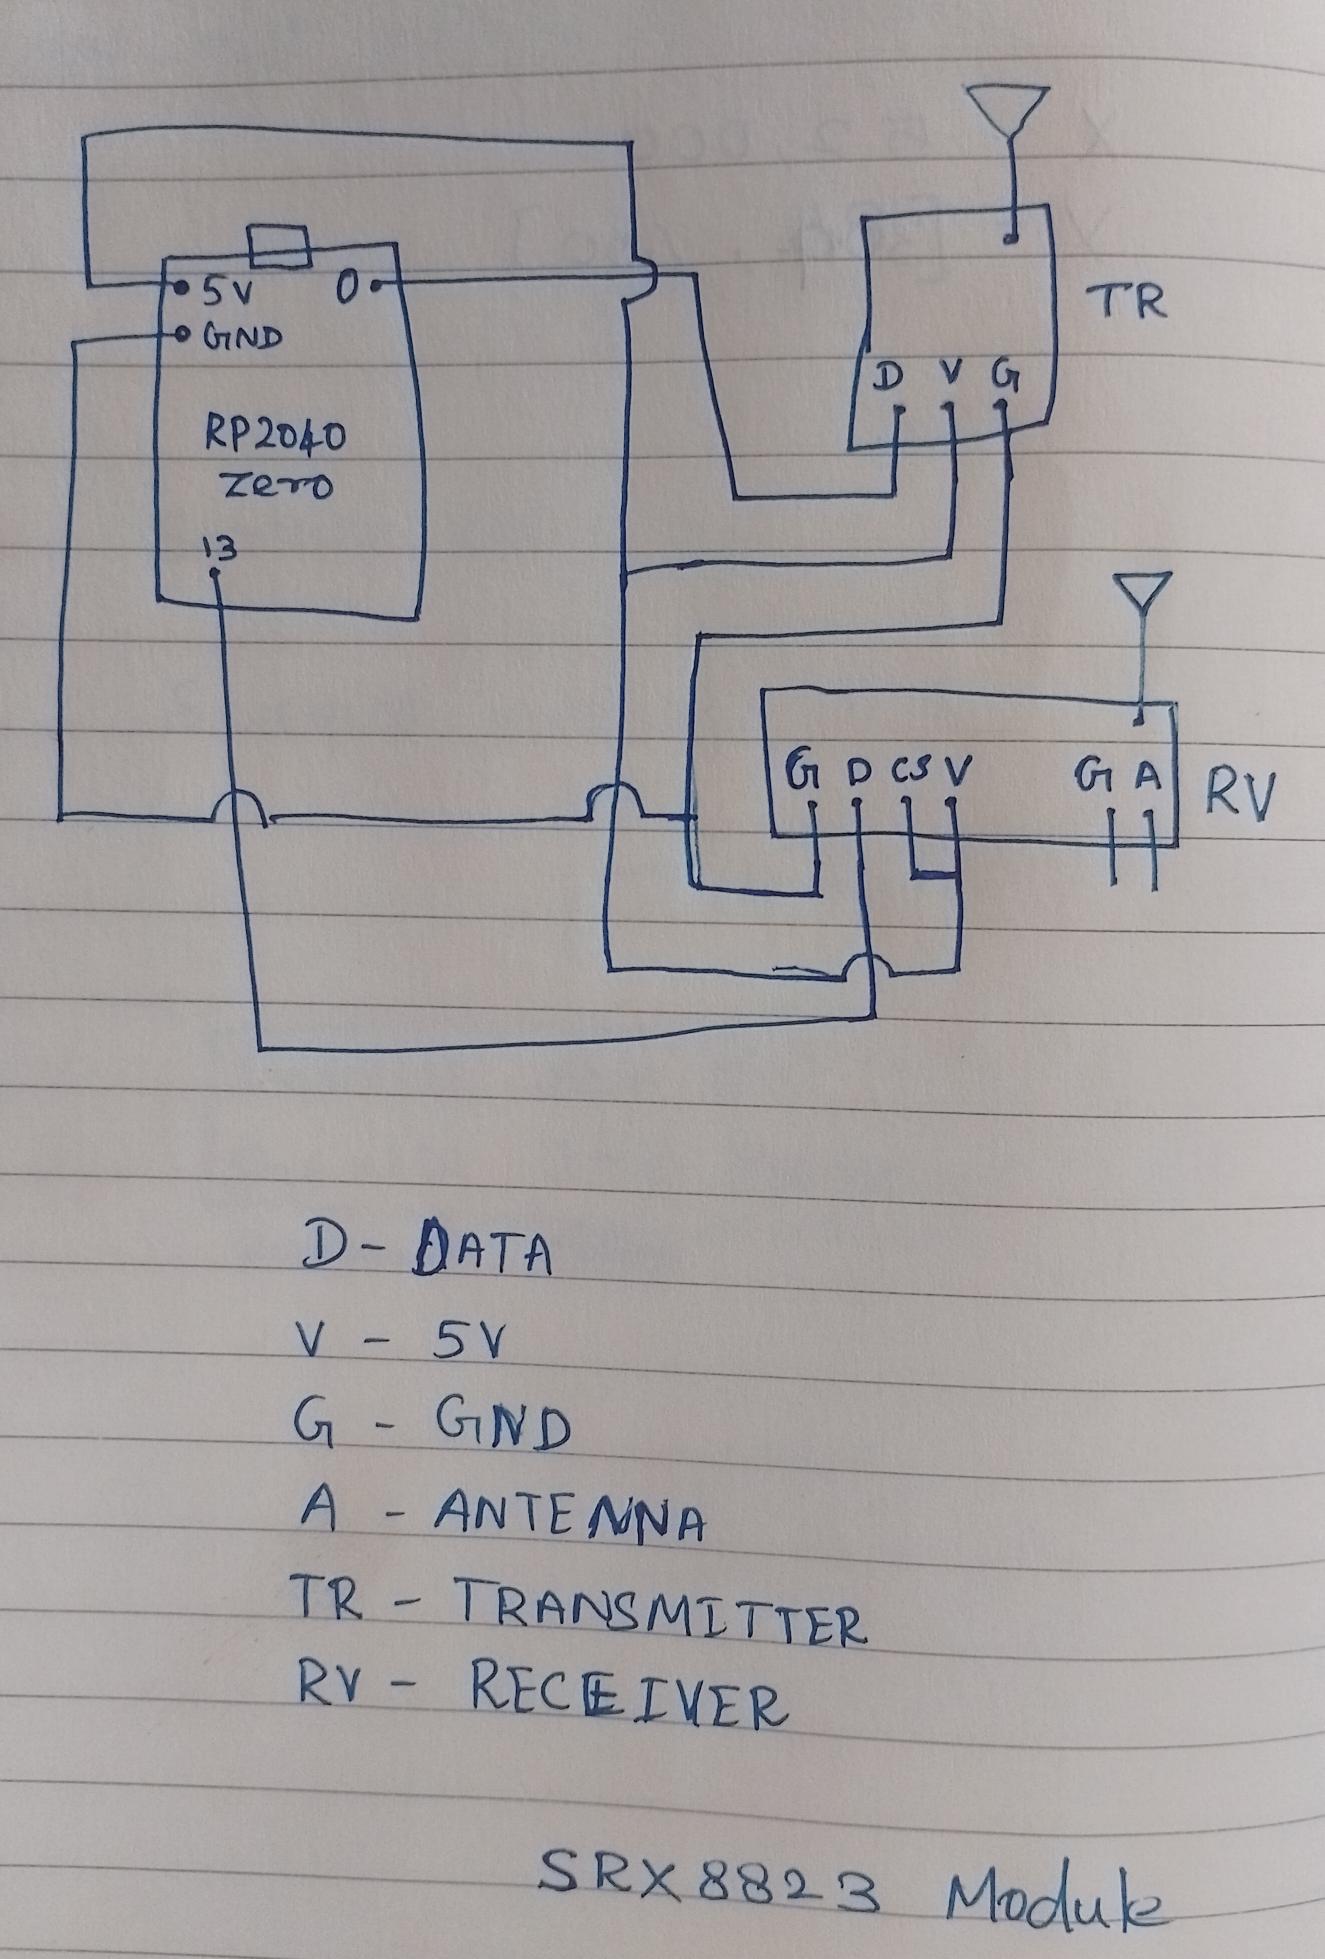 5V 0
GND
RP2040
Zero
13
D V G
TR
G D CS V G A
RV
D - DATA
V - 5V
G - GND
A - ANTENNA
TR - TRANSMITTER
RV - RECEIVER
SRX8823 Module